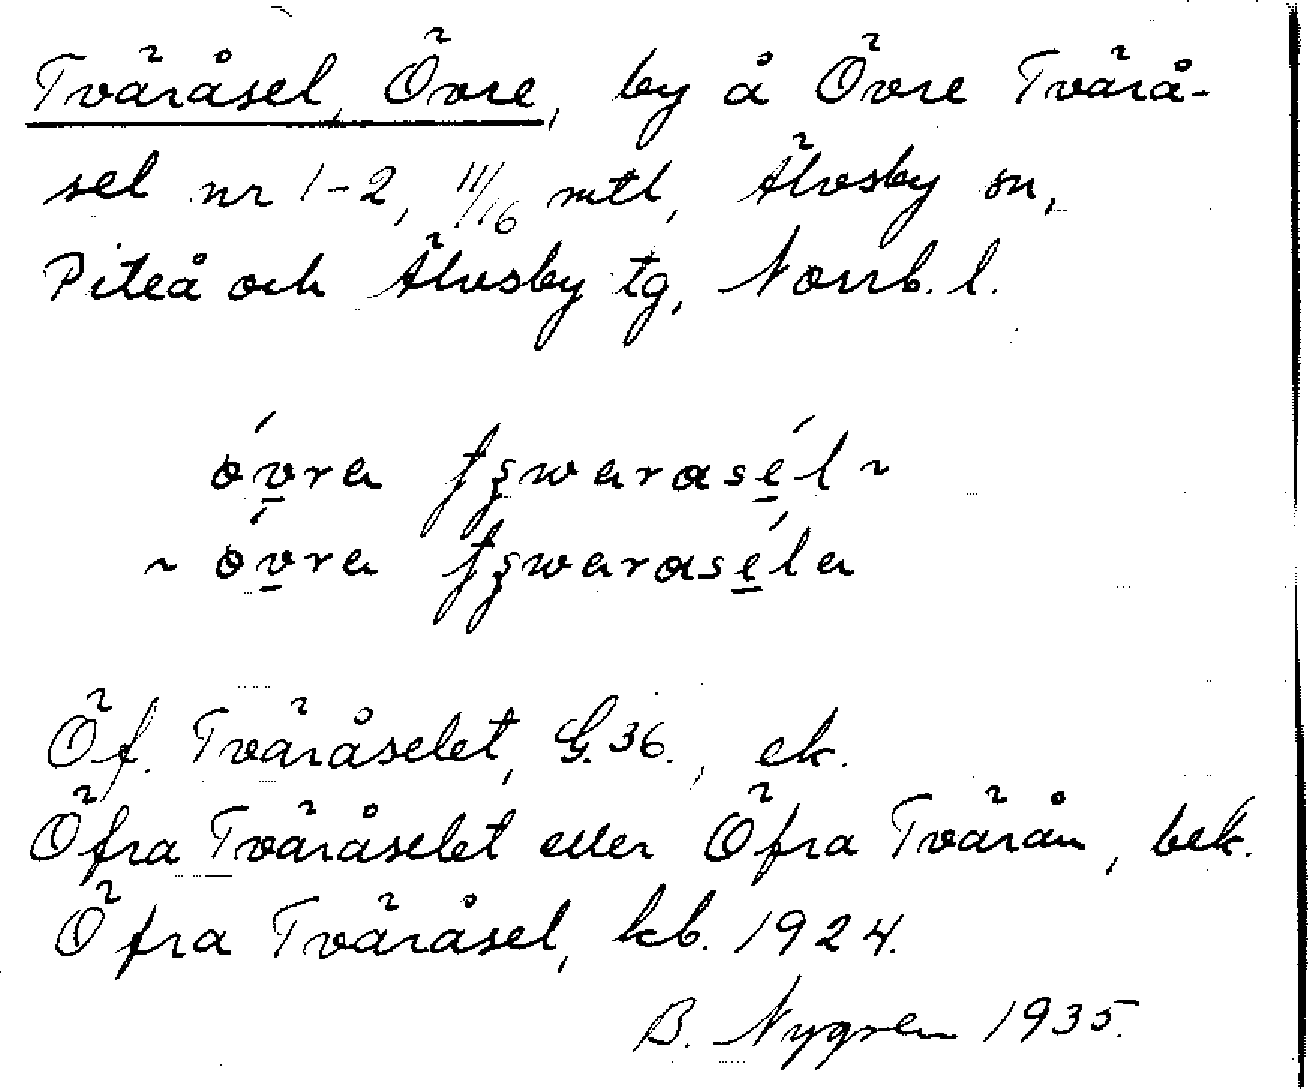 Tväråsel, Övre, by å Övre Tvärå-
sel nr 1-2, 11/16 mtl, Älvsby sn,
Piteå och Älvsby tg, Norrb. l.
övra tʂwarasél ~
~ övra tʂwaraséla
Öf. Tväråselet, G.36., ek.
Öfra Tväråselet eller Öfra Tvärån, bek.
Öfra Tväråsel, kb. 1924.
B. Nygren 1935.